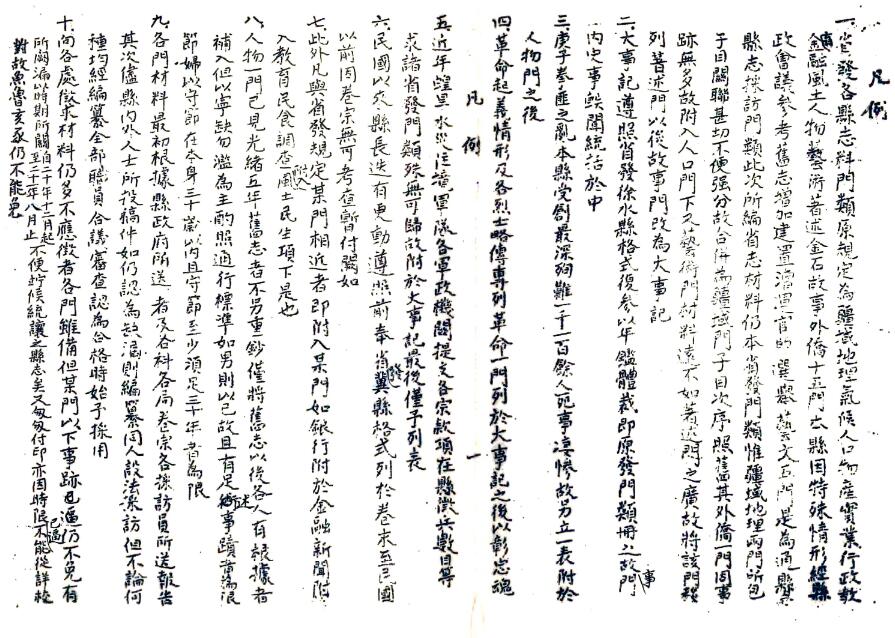 凡例
一、省發各縣志料門類原規定為疆域地理氣候人口物產實業行政教育
金融風土人物藝術著述金石故事外僑十五門本縣因特殊情形經縣
政會議參考舊志增加建置濬運官師選舉藝文五門是為通縣
縣志採訪門類此次所編省志材料仍本省發門類惟疆域地理兩門所包
子目關聯甚切不便強分故合併為疆域門子目次序照舊其外僑一門因事
跡無多故附入人口門下又藝術門材料遠不如著述門之廣故將該門移
列著述門以後故事門改為大事記
二、大事記遵照省發徐水縣格式復參以年鑑體裁即原發門類冊之故事門
內史事軼聞統括於中
三、庚子拳匪之亂本縣受創最深殉難一千一百餘人死事淒慘故另立一表附於
人物門之後
四、革命起義情形及各烈士略傳專列革命一門列於大事記之後以彰忠魂
凡例
一
五、近年蝗旱水災往境軍隊各軍政機關提支各宗款項在縣徵兵數目等
求諸省發門類殊無可歸故附於大事記最後僅予列表
六、民國以來縣長迭有更動遵照前奉省發冀縣格式列於卷末至民國
以前因卷宗無可考查暫付闕如
七、此外凡與省發規定某門相近者即附入某門如銀行附於金融新聞附
入教育民食調查附入風土民生項下是也
八、人物一門已見光緒五年舊志者不另重鈔僅將舊志以後各人有根據者
補入但以寧缺勿濫為主酌照通行標準如男則以已故且有足述事蹟者為限
節婦以守節在本身三十歲以內且守節至少須足三十年者為限
九、各門材料最初根據縣政府所送者及各科各局卷宗各採訪員所送報告
其次儘縣內外人士所投稿件如仍認為缺漏則編纂同人設法採訪但不論何
種均經編纂全部職員合議審查認為合格時始予採用
十、向各處徵求材料仍多不應徵者各門雖備但某門以下事跡已遍仍不免有
所闕漏以時期所關自二十年十二月起至二十二年八月止不便竚候統讓之縣志矣又匆匆付印亦因時限已過不能從詳校
對故魚魯亥豕仍不能免